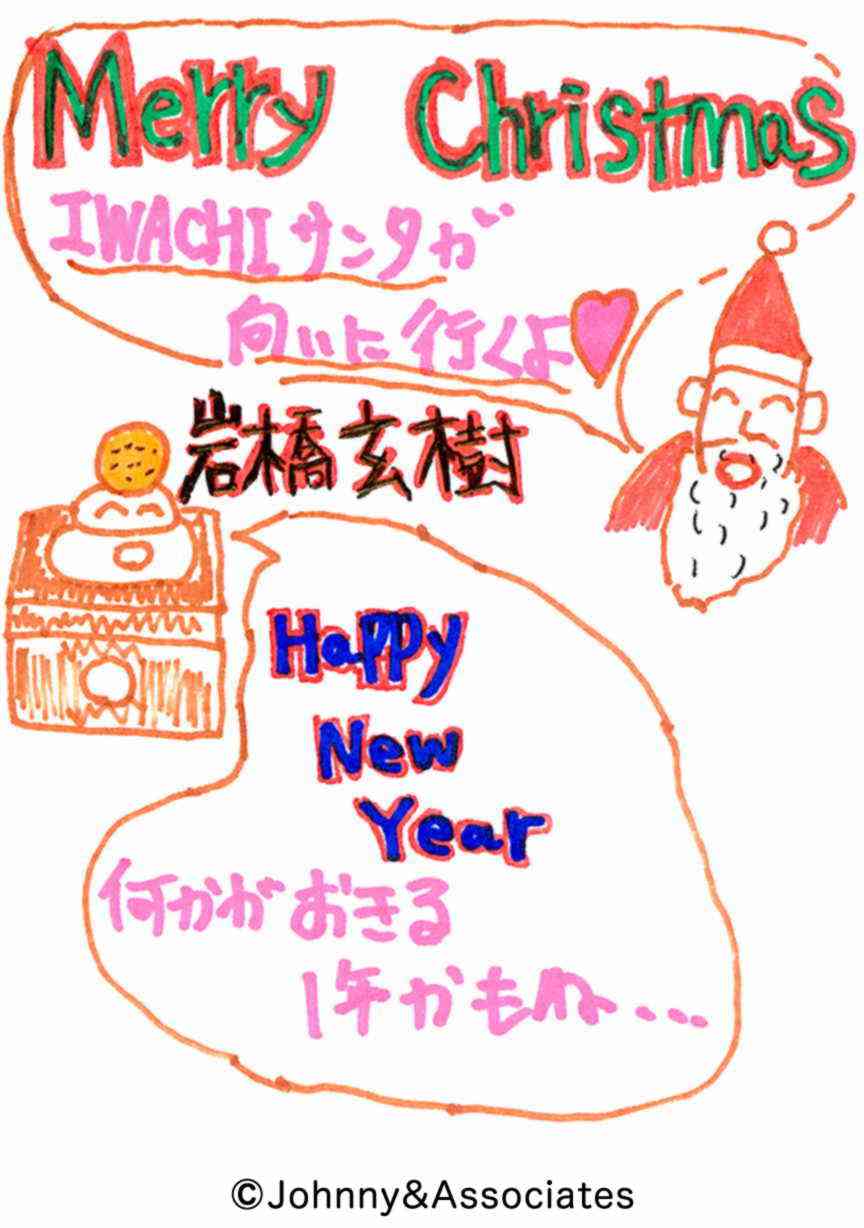 Merry Christmas
IWACHIサンタが
向いに行くよ
岩橋玄樹
Happy
New
Year
何かがおきる
1年かもね...
©Johnny&Associates